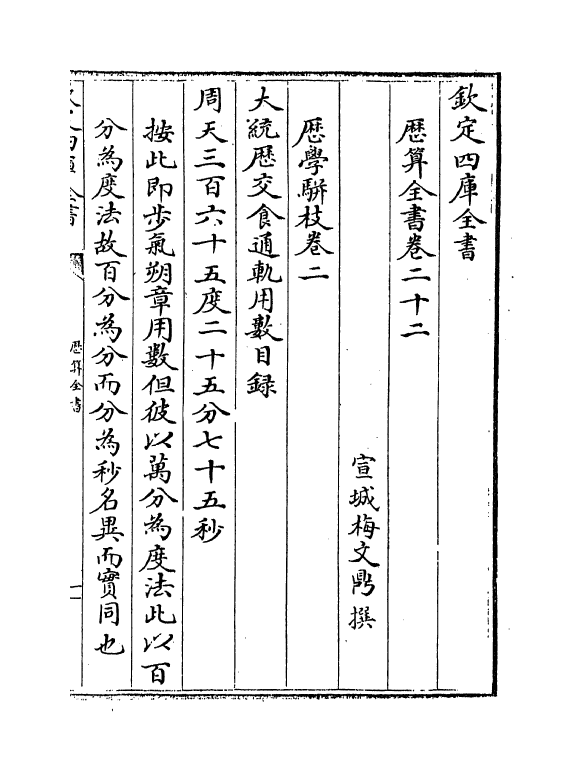 欽定四庫全書
歴算全書卷二十二
宣城梅文鼎撰
歴學駢枝卷二
大統歴交食通軌用數目録
周天三百六十五度二十五分七十五秒
按此即步氣朔章用數但彼以萬分為度法此以百
分為度法故百分為分而分為秒名異而實同也
歴算全書
一